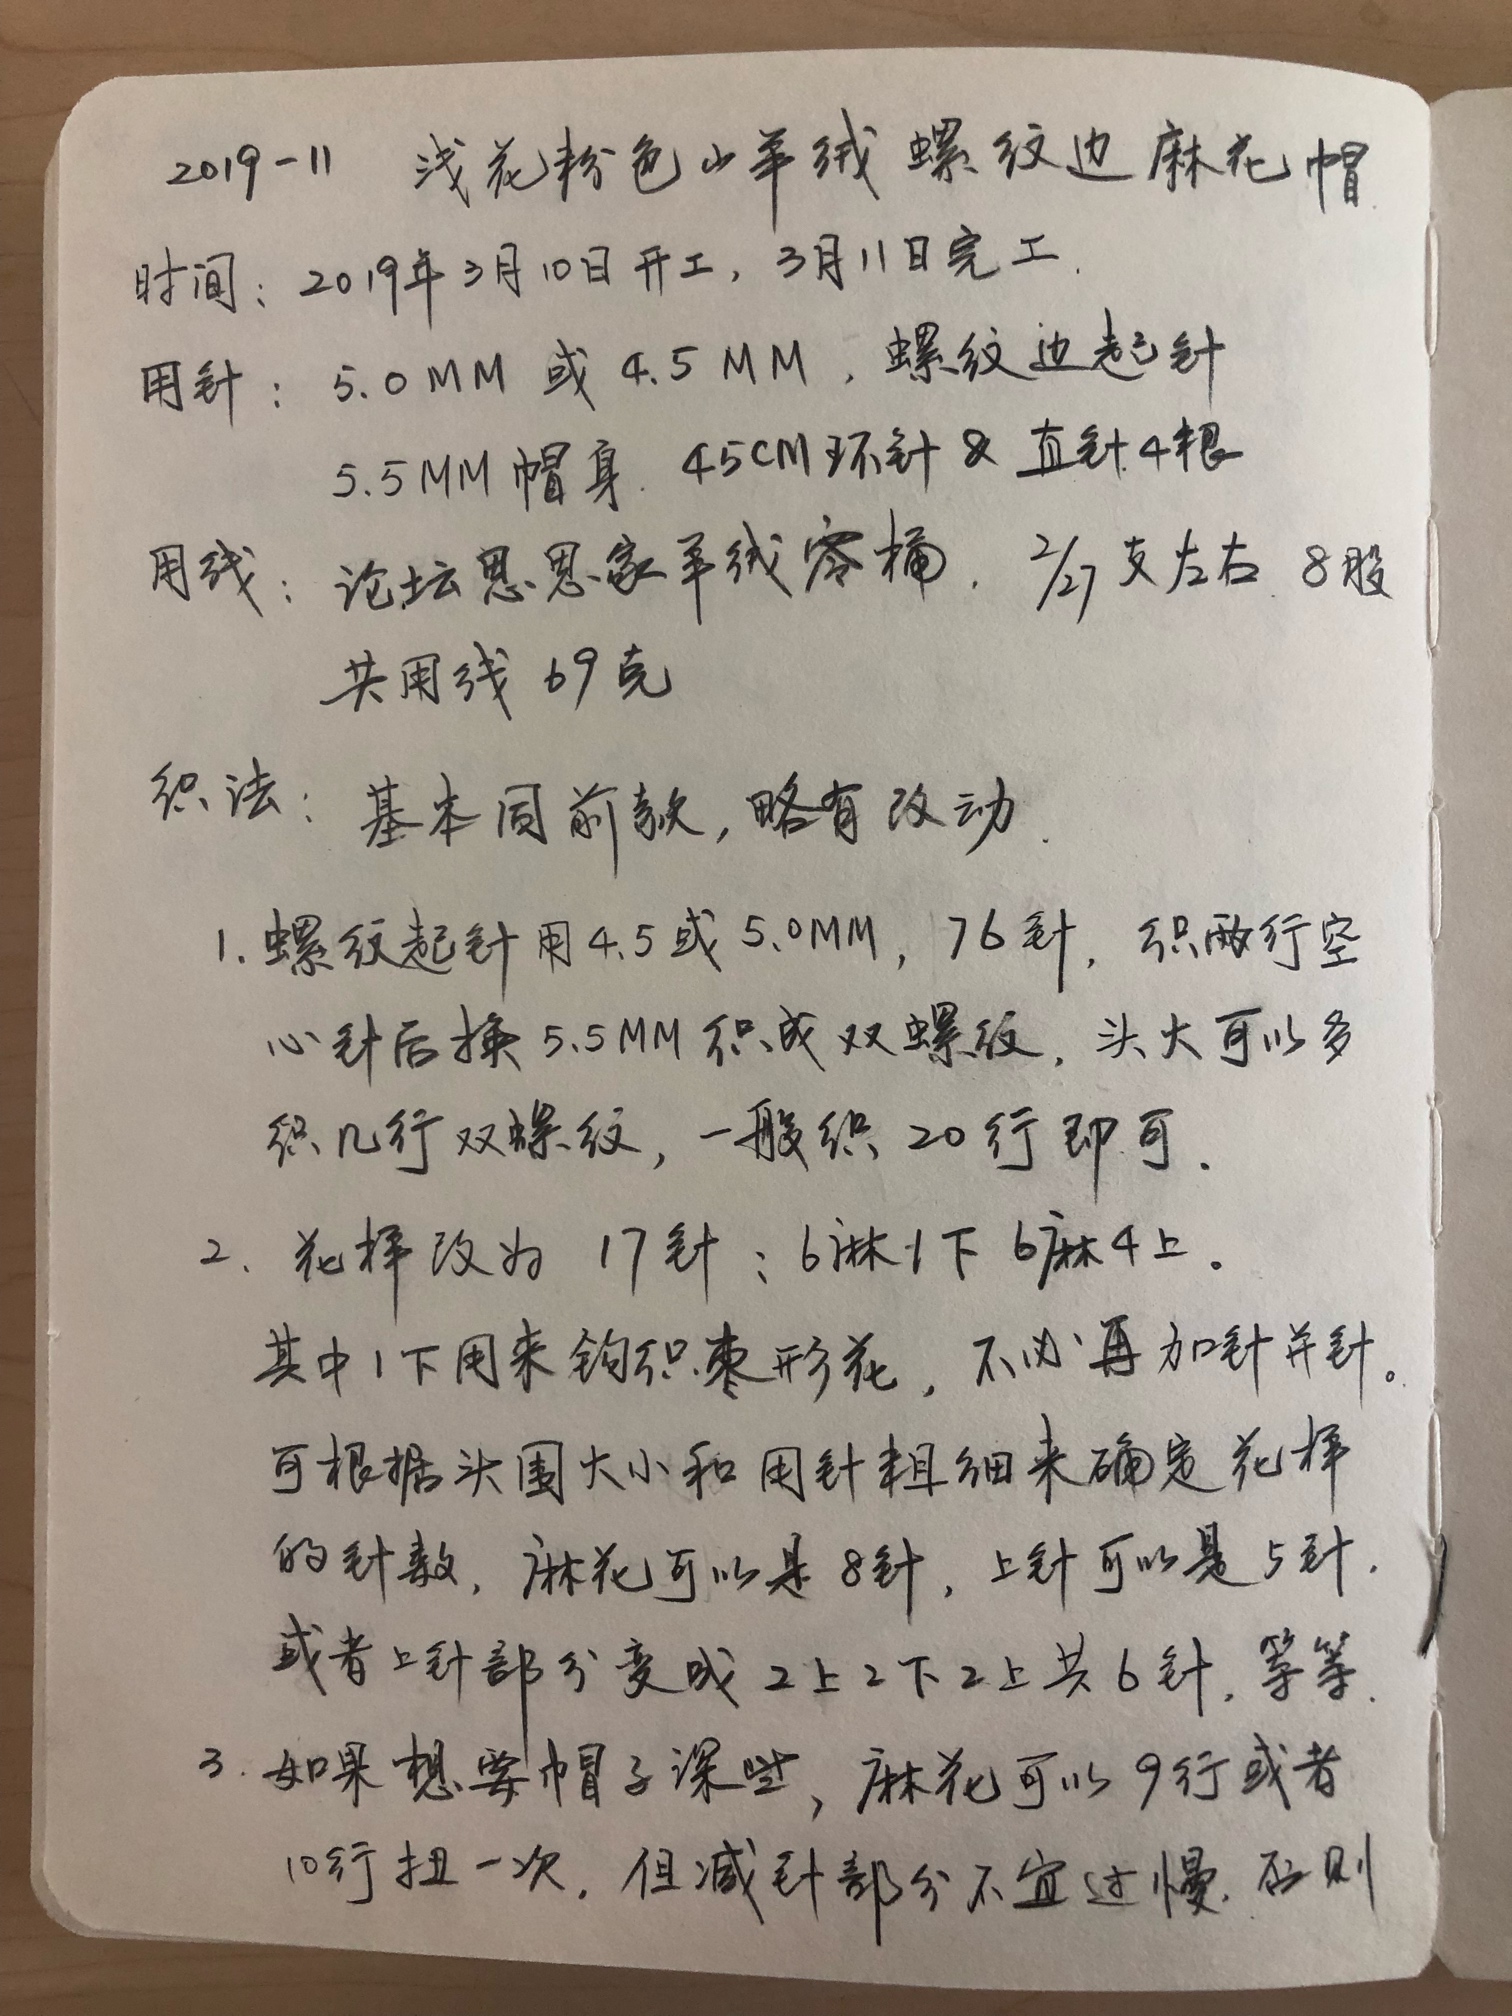 2019-11 浅花粉色山羊绒螺纹边麻花帽
时间：2019年3月10日开工，3月11日完工.
用针：5.0MM 或 4.5MM，螺纹边起针
5.5MM 帽身. 45CM环针 & 直针4根
用线：论坛恩恩家羊绒零桶. 2/27支左右 8股
共用线 69克
织法：基本同前款，略有改动.
1. 螺纹起针用4.5或5.0MM，76针，织两行空
心针后换5.5MM织成双螺纹，头大可以多
织几行双螺纹，一般织20行即可.
2. 花样改为 17针：6麻1下6麻4上。
其中1下用来钩织枣形花，不必再加针并针。
可根据头围大小和用针粗细来确定花样
的针数，麻花可以是8针，上针可以是5针.
或者上针部分变成2上2下2上共6针，等等.
3. 如果想要帽子深些，麻花可以9行或者
10行扭一次，但减针部分不宜过慢，否则